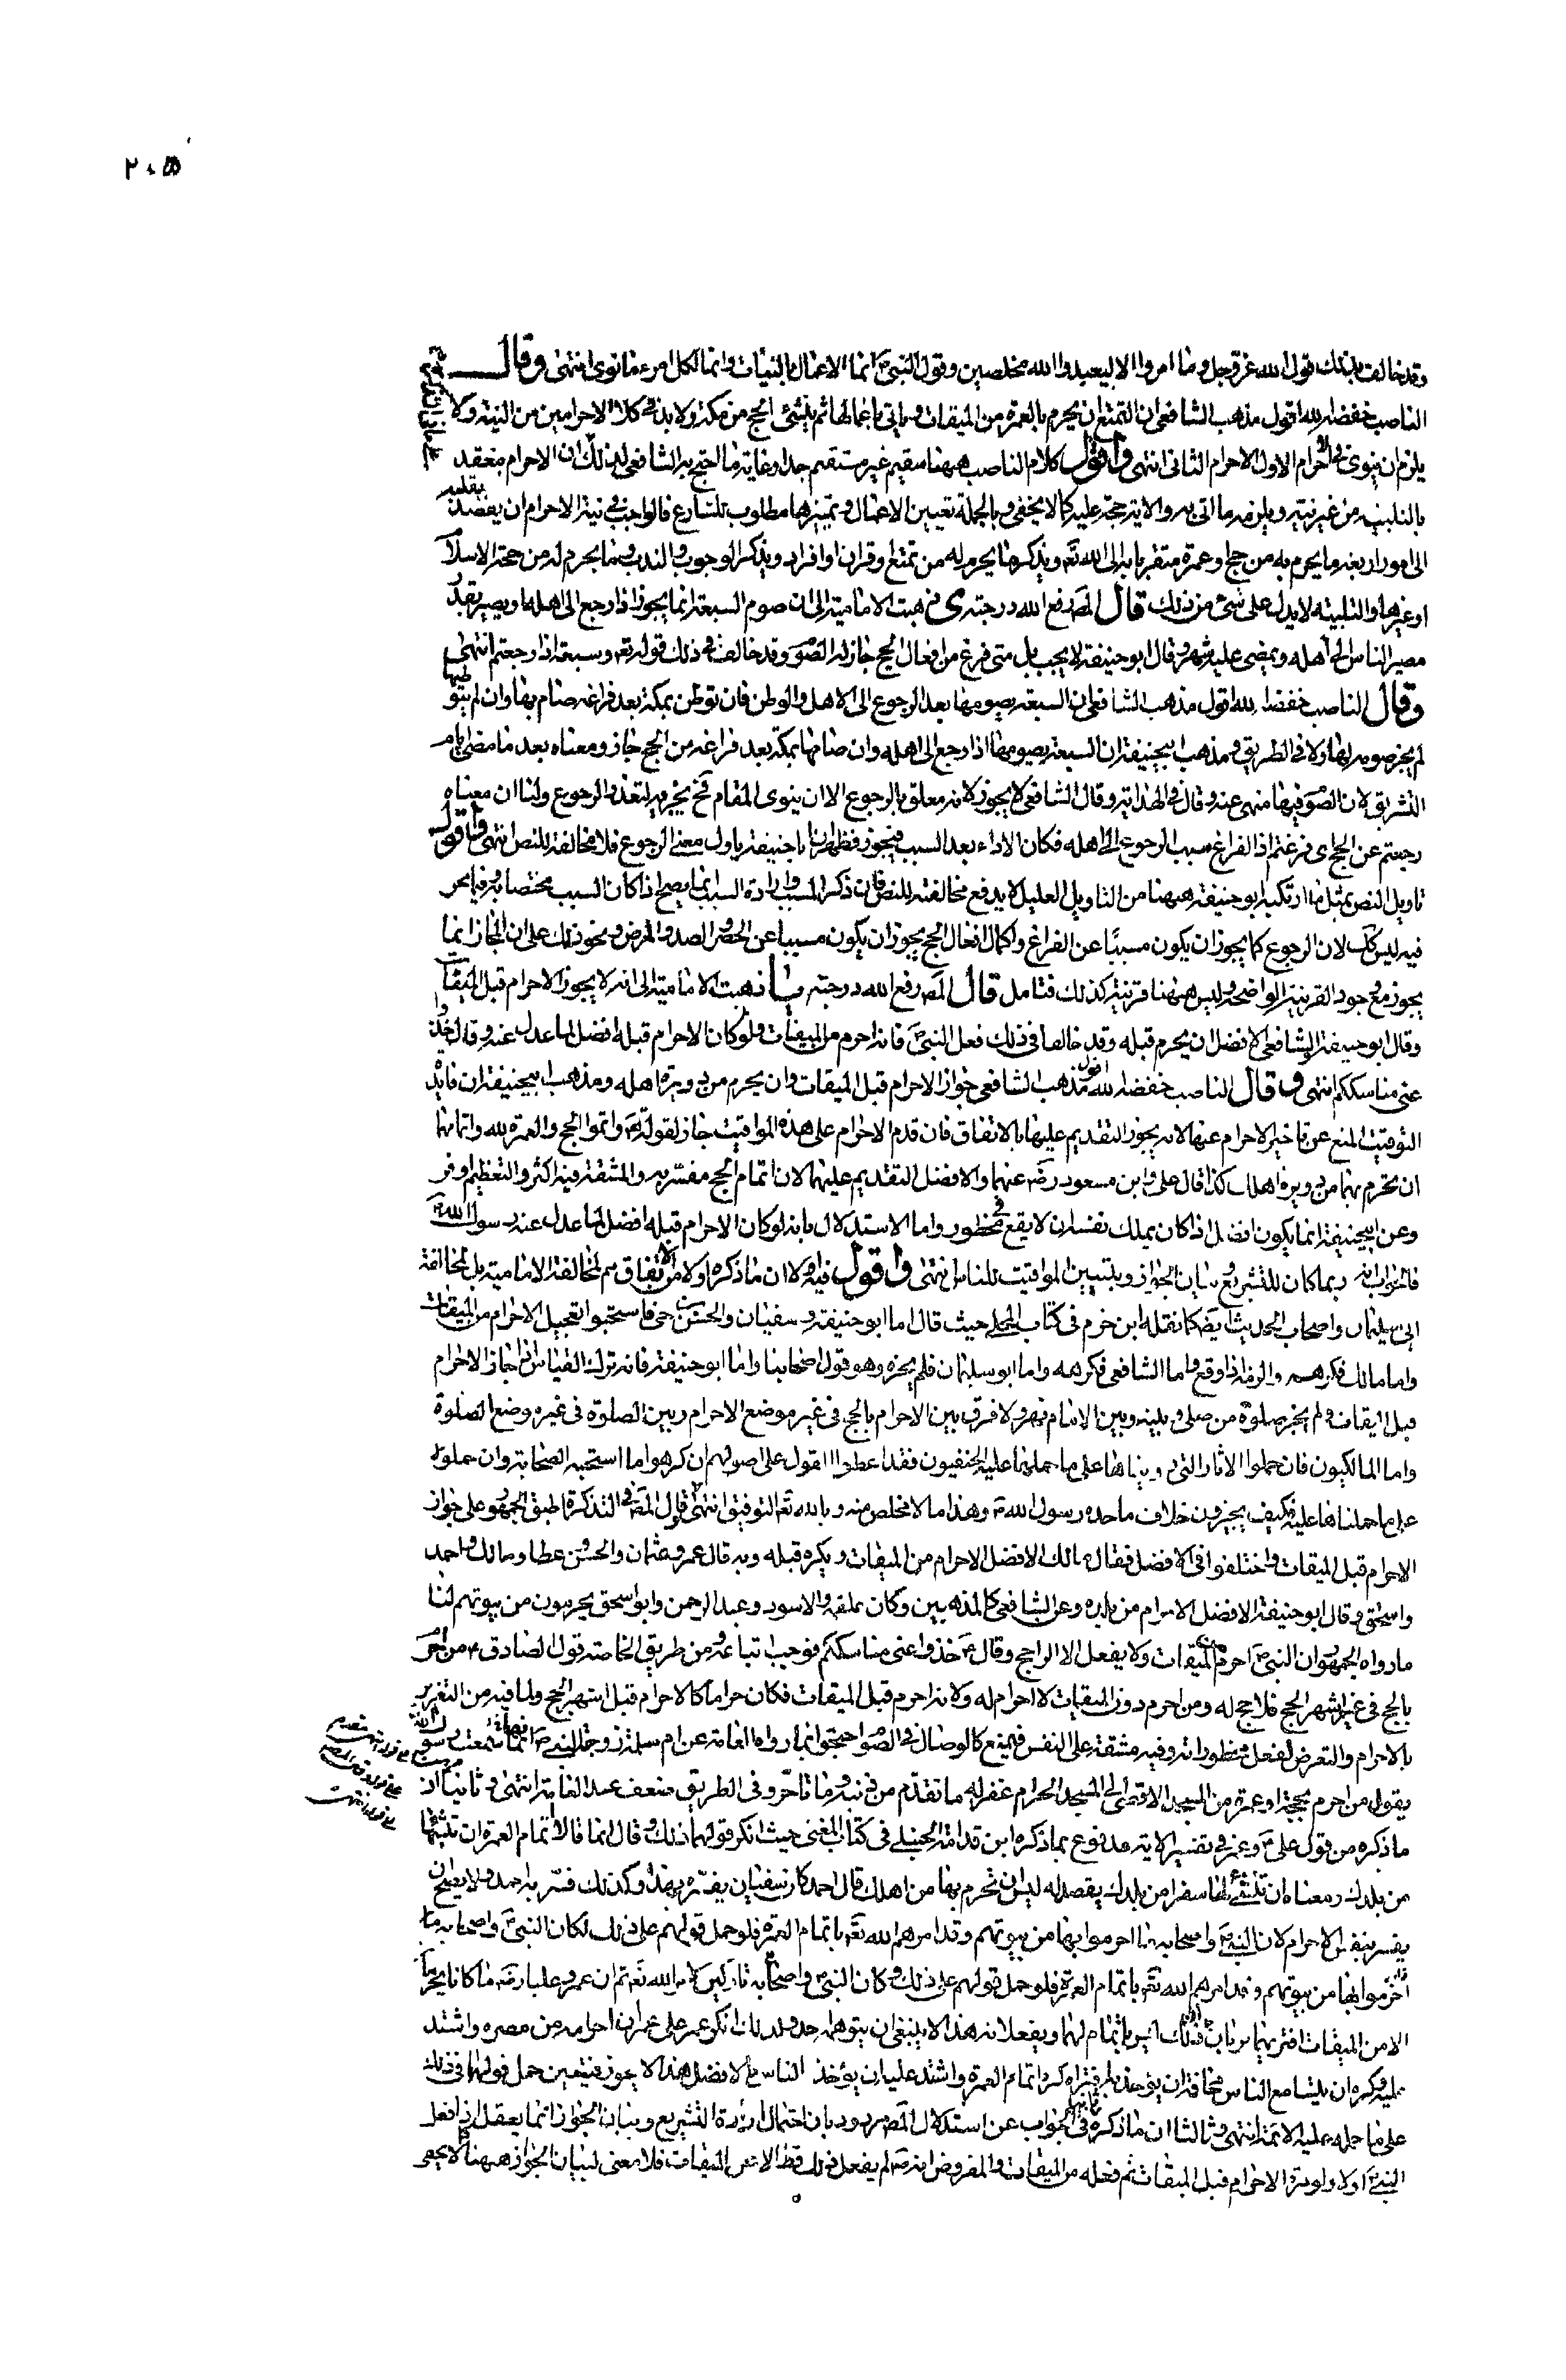 ٢٠۵
وقد خالف بذلك قول الله عز وجل وما امروا الا ليعبدوا الله مخلصين وقول النبي ص انما الاعمال بالنيات وانما لكل امرء ما نوى انتهى وقال
الناصب خفضه الله اقول مذهب الشافعي ان التمتع ان يحرم بالعمرة من الميقات وياتي باعمالها ثم ينشئ الحج من مكة ولا بد في كلا الاحرامين من النية ولا
يلزم ان ينوى في احرام الاول الاحرام الثاني انتهى واقول كلام الناصب ههنا سقيم غير مستقيم جدا وغاية ما احتج به الشافعي لذلك ان الاحرام ينعقد
بالتلبية من غير نية ويلزمه ما اتى به والاية حجة عليه كما لا يخفى وبالجملة تعيين الاعمال وتميزها مطلوب للشارع فالواجب في نية الاحرام ان يقصد بقلبه
الى امور اربعة ما يحرم به من حج او عمرة متقربا به الى الله تعه ويذكر ما يحرم له من تمتع او قران او افراد ويذكر الوجوب والندب وما يحرم له من حجة الاسلام
او غيرها والتلبية لا يدل على شئ من ذلك قال المص رفع الله درجته ى ذهبت الامامية الى ان صوم السبعة انما يجوز اذا رجع الى اهله ويصير بقدر
مصير الناس الى اهله ويمضى عليه شهر وقال ابو حنيفة لا يجب بل متى فرغ من افعال الحج جاز له الصوم وقد خالف في ذلك قوله تعه وسبعة اذا رجعتم انتهى
وقال الناصب خفضه الله اقول مذهب الشافعي ان السبعة يصومها بعد الرجوع الى الاهل والوطن فان توطن بمكة بعد فراغه صام بها وان لم يتوطنها
لم يجز صومه بها ولا في الطريق ومذهب ابيحنيفة ان السبعة يصومها اذا رجع الى اهله وان صامها بمكة بعد فراغه من الحج جاز ومعناه بعد ما مضى ايام
التشريق لان الصوم فيها منهى عنه وقال في الهداية وقال الشافعي لا يجوز لانه معلق بالرجوع الا ان ينوى المقام فح يجزيه لتعذر الرجوع ولنا ان معناه
رجعتم عن الحج اى فرغتم اذ الفراغ سبب الرجوع الى اهله فكان الاداء بعد السبب فيجوز فظهر ان ابا حنيفة ياول معنى الرجوع فلا مخالفة للنص انتهى واقول
تاويل النص بمثل ما ارتكبه ابو حنيفة ههنا من التاويل العليل لا يدفع مخالفته للنص فان ذكر المسبب وارادة السبب انما يصح اذا كان السبب مختصا به وفيما نحن
فيه ليس كك لان الرجوع كما يجوز ان يكون مسببا عن الفراغ واكمال افعال الحج يجوز ان يكون مسببا عن الحصر والصد والمرض ونحو ذلك على ان المجاز انما
يجوز مع وجود القرينة الواضحة وليس ههنا قرينة كذلك فتامل قال المص رفع الله درجته يا ذهبت الامامية الى انه لا يجوز الاحرام قبل الميقات
وقال ابو حنيفة والشافعي الافضل ان يحرم قبله وقد خالفا في ذلك فعل النبي ص فانه احرم من الميقات ولو كان الاحرام قبله افضل لما عدل عنه وقال خذوا
عني مناسككم انتهى وقال الناصب خفضه الله اقول مذهب الشافعي جواز الاحرام قبل الميقات وان يحرم من دويرة اهله ومذهب ابيحنيفة ان فايدة
التوقيت المنع عن تاخير الاحرام عنها لانه يجوز التقديم عليها بالاتفاق فان قدم الاحرام على هذه المواقيت جاز لقوله تعه واتموا الحج والعمرة لله واتمامها
ان يحرم بهما من دويرة اهلك كذا قال علي وابن مسعود رضه عنهما والافضل التقديم عليها لان اتمام الحج مفسر به والمشقة فيه اكثر والتعظيم اوفر
وعن ابيحنيفة انما يكون افضل اذا كان يملك نفسه ان لا يقع في محظور واما الاستدلال بانه لو كان الاحرام قبله افضل لما عدل عنه رسول الله ص
فالجواب انه ربما كان للتشريع وبيان الجواز وتبيين المواقيت للناس انتهى واقول فيه اولا ان ما ذكره اولا من الاتفاق مم لمخالفة الامامية بل لمخالفة
ابى سليمان واصحاب الحديث ايضا كما نقله ابن حزم في كتاب المحلى حيث قال اما ابو حنيفة وسفيان والحسن بن حى فاستحبوا تعجيل الاحرام من الميقات
واما مالك فكرهه والزمه اذا وقع واما الشافعي فكرهه واما ابو سليمان فلم يجزه وهو قول اصحابنا واما ابو حنيفة فانه ترك القياس اذ اجاز الاحرام
قبل الميقات ولم يجز صلوة من صلى وبينه وبين الامام نهر ولا فرق بين الاحرام بالحج في غير موضع الاحرام وبين الصلوة في غير موضع الصلوة
واما المالكيون فان حملوا الاثار التي رويناها على ما حملها عليه الحنفيون فقد اعطوا القول على اصولهم ان كرهوا ما استحبه الصحابة وان حملوه
على ما حملناها عليه فكيف يجيزون خلاف ما حده رسول الله ص وهذا ما لا مخلص منه وبالله تعه التوفيق انتهى وقال المص في التذكرة اطبق الجمهور على جواز
الاحرام قبل الميقات واختلفوا في الافضل فقال مالك الافضل الاحرام من الميقات ويكره قبله وبه قال عمر وعثمان والحسن وعطا ومالك واحمد
واسحق وقال ابو حنيفة الافضل الاحرام من بلده وعن الشافعي كالمذهبين وكان علقمة والاسود وعبد الرحمن وابو اسحق يحرمون من بيوتهم لنا
ما رواه الجمهور ان النبي ص احرم من الميقات ولا يفعل الا الراجح وقال ص خذوا عني مناسككم فوجب اتباعه ومن طريق الخاصة قول الصادق ع من احرم
بالحج في غير اشهر الحج فلا حج له ومن احرم دون الميقات لا احرام له ولانه احرم قبل الميقات فكان حراما كالاحرام قبل اشهر الحج ولما فيه من التغرير
بالاحرام والتعرض لفعل محظوراته وفيه مشقة على النفس فيمنع كالوصال في الصوم احتجوا بما رواه العامة عن ام سلمة زوجة النبي ص انها سمعت رسول الله
يقول من احرم بحجة او عمرة من المسجد الاقصى الى المسجد الحرام غفر له ما تقدم من ذنبه وما تاخر وفي الطريق ضعف عند العامة انتهى وثانيا ان
ما ذكره من قول علي ع وعمر في تفسير الاية مدفوع بما ذكره ابن قدامة الحنبلى في كتاب المغنى حيث انكر قولهما ذلك وقال انما قالا اتمام العمرة ان تنشئها
من بلدك ومعناه ان تنشئ لها سفرا من بلدك يقصد له ليس ان تحرم بها من اهلك قال احمد كان سفيان يفسره بهذا وكذلك فسر به احمد ولا يصح ان
يفسر بنفس الاحرام لان النبي ص واصحابه ما احرموا بها من بيوتهم وقد امرهم الله تعه باتمام العمرة فلو حمل قولهم على ذلك لكان النبي ص واصحابه ما
احرموا بها من بيوتهم وقد امرهم الله تعه باتمام العمرة فلو حمل قولهم على ذلك وكان النبي ص واصحابه تاركين لامر الله تعه ثم ان عمر وعليا رضه ما كانا يحرمان
الا من الميقات افتريهما يريان ان ذلك ليس باتمام لهما ويفعلانه هذا لا ينبغى ان يتوهمه احد ولذلك انكر عمر على عمران احرامه من مصره واشتد
عليه وكره ان يتسامع الناس مخافة ان يؤخذ به افتراه كره اتمام العمرة واشتد عليه ان يؤخذ الناس بالافضل هذا لا يجوز فيتعين حمل قولهما في ذلك
على ما حمله عليه الائمة انتهى وثالثا ان ما ذكره في الجواب عن استدلال المص مردود بان احتمال ارادة التشريع وبيان الجواز انما يعقل اذا فعل
النبي ص اولا ولو مرة الاحرام قبل الميقات ثم فعله من الميقات والمفروض انه ص لم يفعل ذلك قط الا من الميقات فلا معنى لبيان الجواز ههنا كما لا يخفى